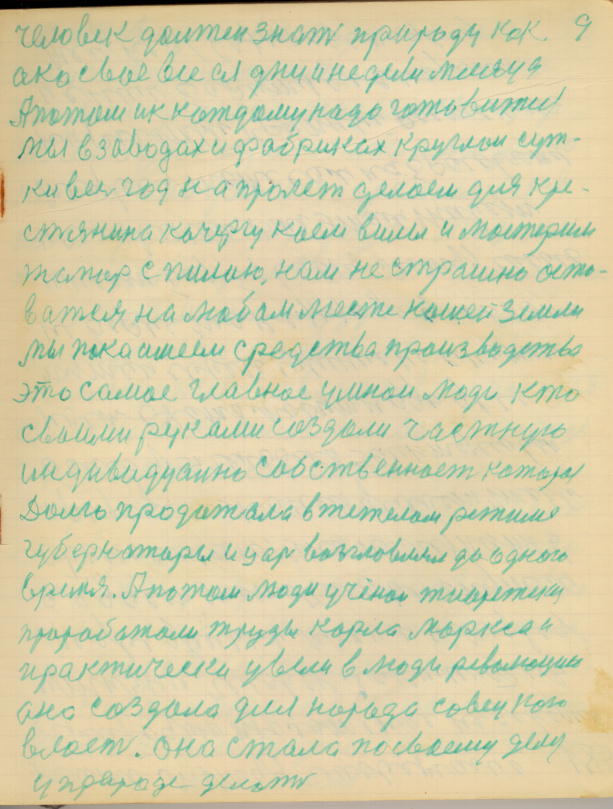 человек должен знать природу как 9
око свое все ея дни и недели месяца
А потом и к каждому надо готовится
мы в заводах и фабриках круглои сут-
ки веь год на пролет делаем для кре-
стянина качергу коем вилы и мастерим
топор с пилою, нам не страшно оста-
ватся на любом месте нашей земли
мы пока имеем средства производства
это самое главное умнои люди кто
своими руками создали частную
индывидуално собственност
Долго продожала в тежелом режиме
губернаторы и цар возгловлял до одного
время. А потом люди учёнои тиоретики
проработали труды Карла Маркса и
практически увели в люди революции
она создала для народа совецкою
власт. Она стала по своему делу
у природе делать